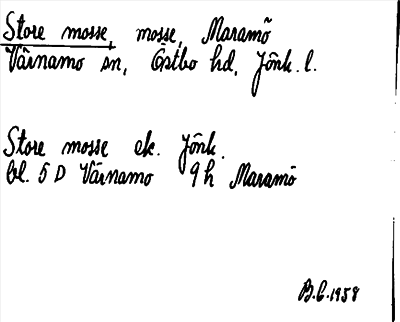 Store mosse, mosse, Maramö
Värnamo sn, Östbo hd, Jönk. l.
Store mosse ek. Jönk.
bl. 5 D Värnamo 9 h Maramö
B.C. 1958